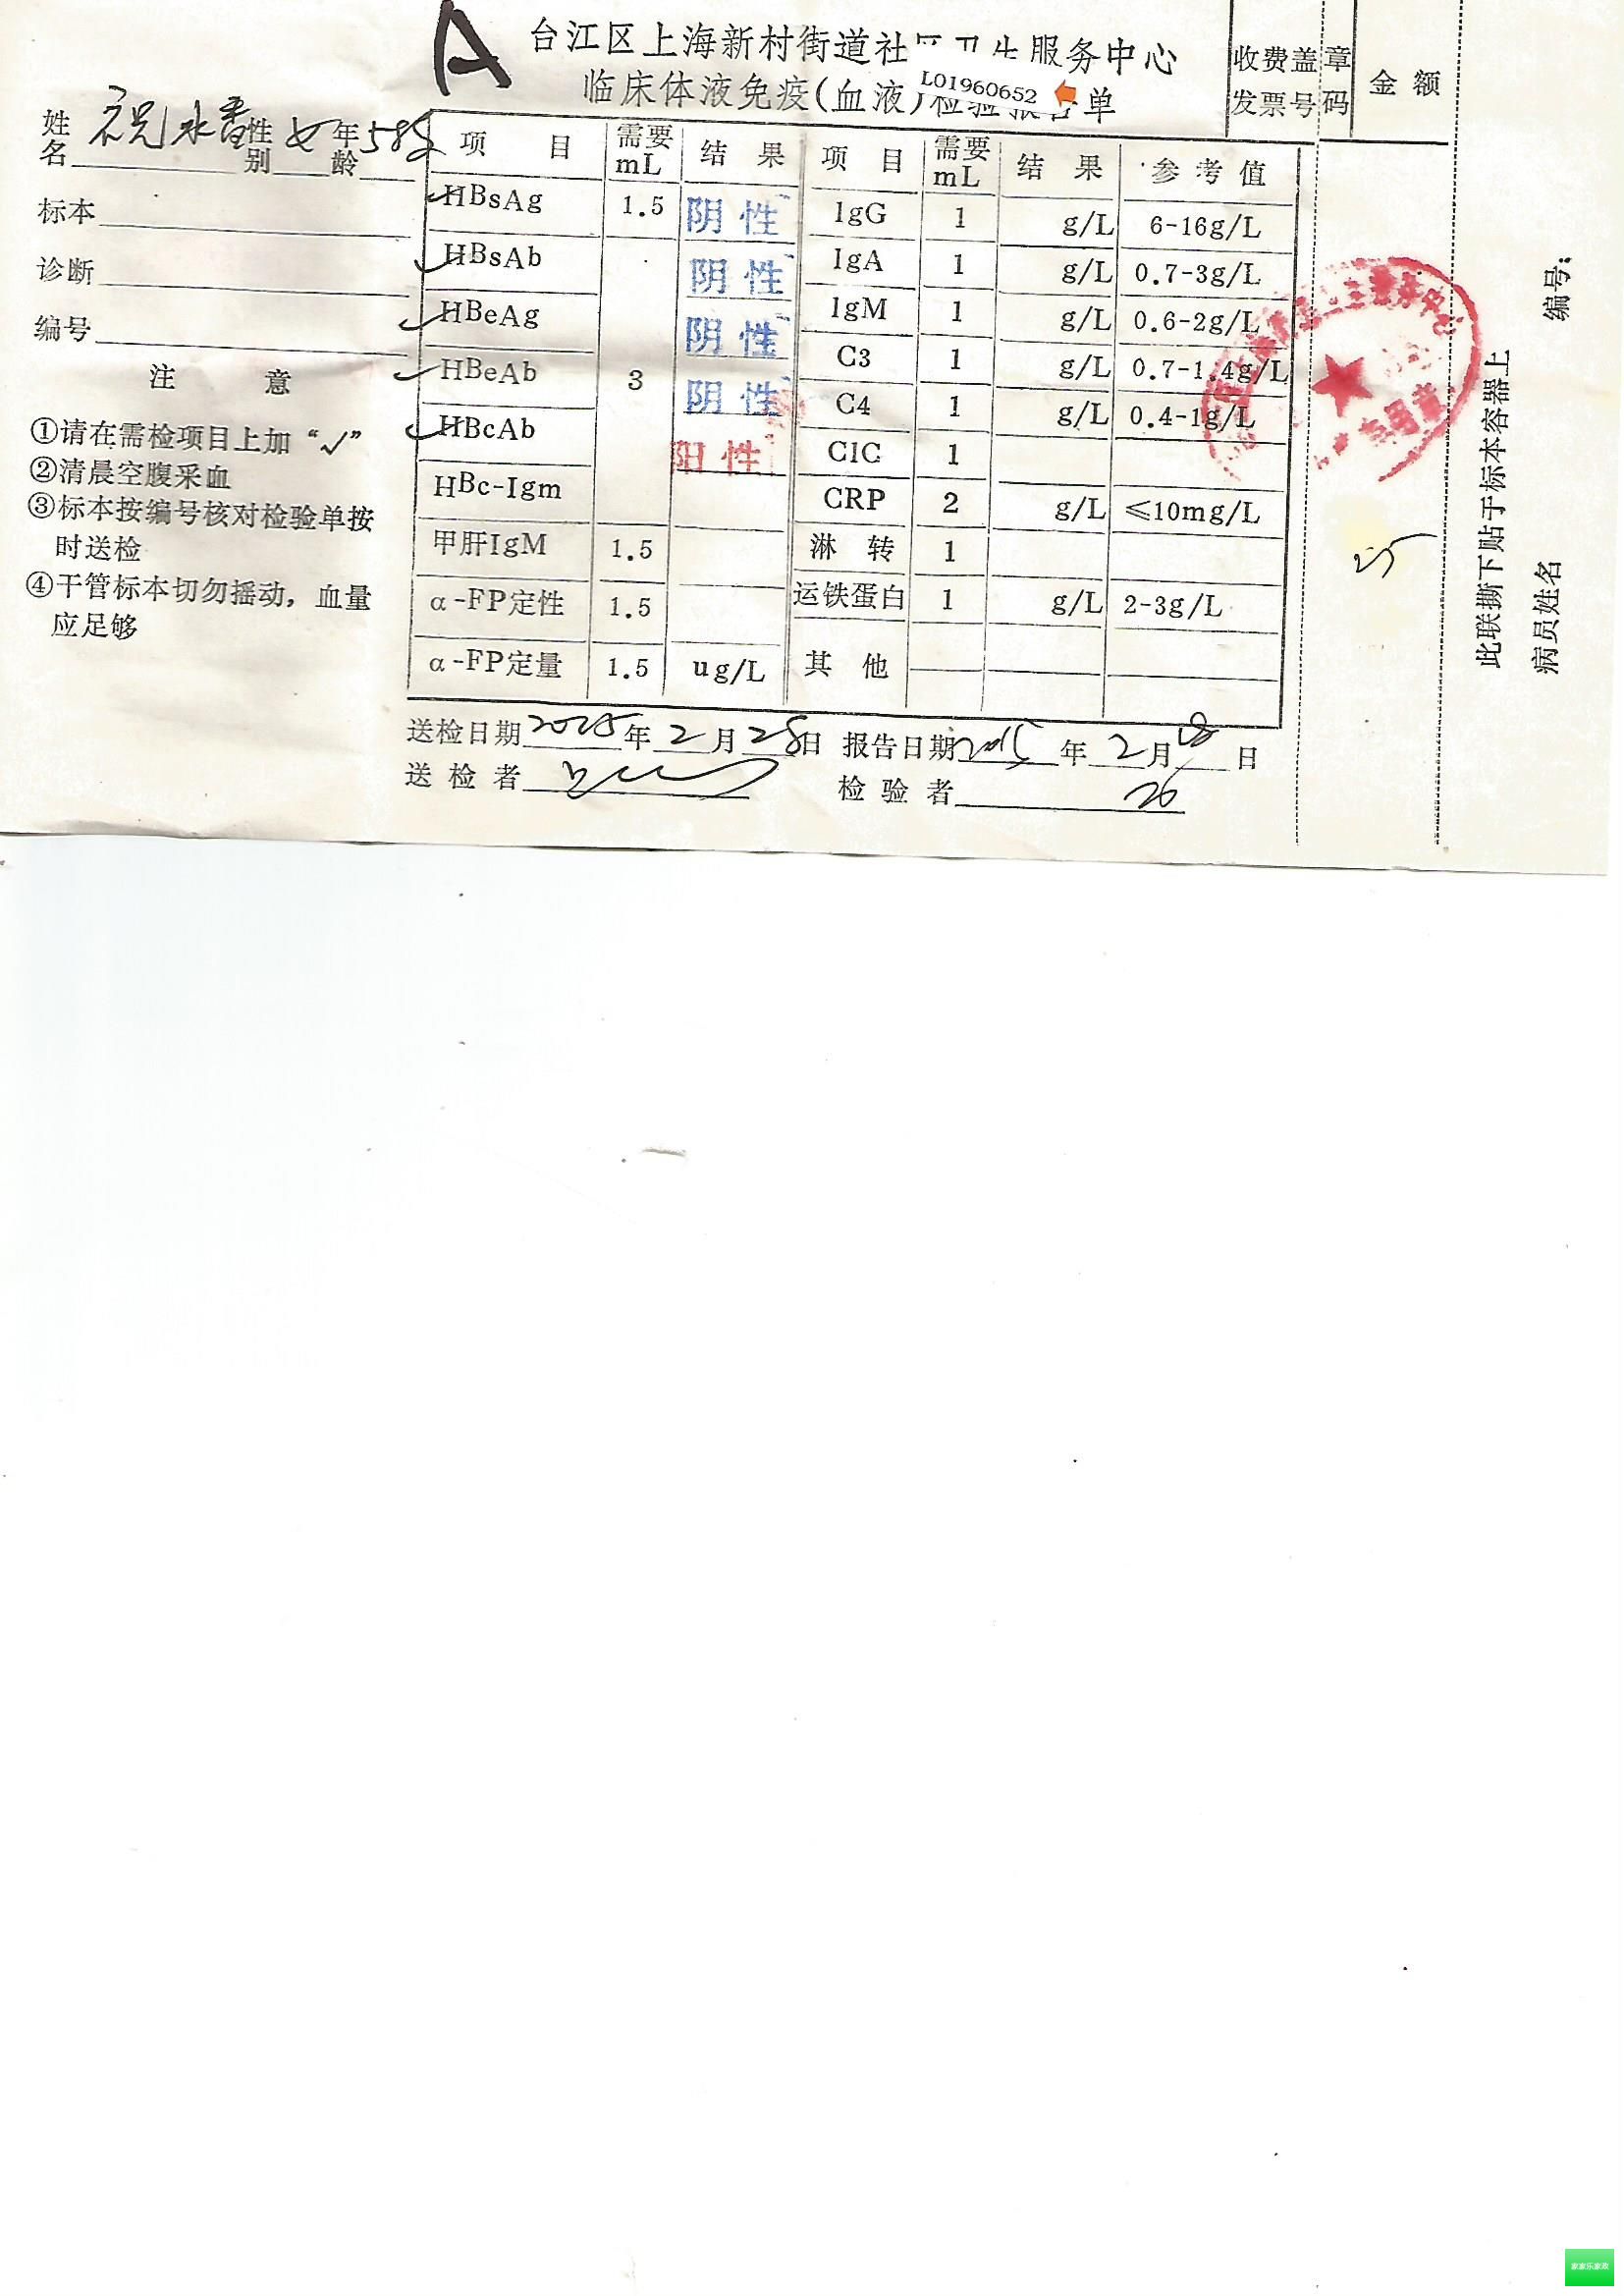 A
台江区上海新村街道社 服务中心
临床体液免疫(血液)检验报告单
L01960652
收费盖章 金额
发票号码
姓名 祝水香 性别 女 年龄 58岁
标本
诊断
编号
注 意
①请在需检项目上加“√”
②清晨空腹采血
③标本按编号核对检验单按
时送检
④干管标本切勿摇动，血量
应足够
项 目 需要mL 结 果 项 目 需要mL 结 果 参 考 值
HBsAg 1.5 阴性 IgG 1 g/L 6-16g/L
HBsAb 阴性 IgA 1 g/L 0.7-3g/L
HBeAg 阴性 IgM 1 g/L 0.6-2g/L
HBeAb 3 阴性 C3 1 g/L 0.7-1.4g/L
HBcAb 阳性 C4 1 g/L 0.4-1g/L
HBc-Igm CIC 1
CRP 2 g/L ≤10mg/L
甲肝IgM 1.5 淋 转 1
α-FP定性 1.5 运铁蛋白 1 g/L 2-3g/L
α-FP定量 1.5 ug/L 其 他
送检日期 年 2 月 28 日 报告日期 年 2 月 28 日
送 检 者
检 验 者
25
此联撕下贴于标本容器上
病员姓名
编号: